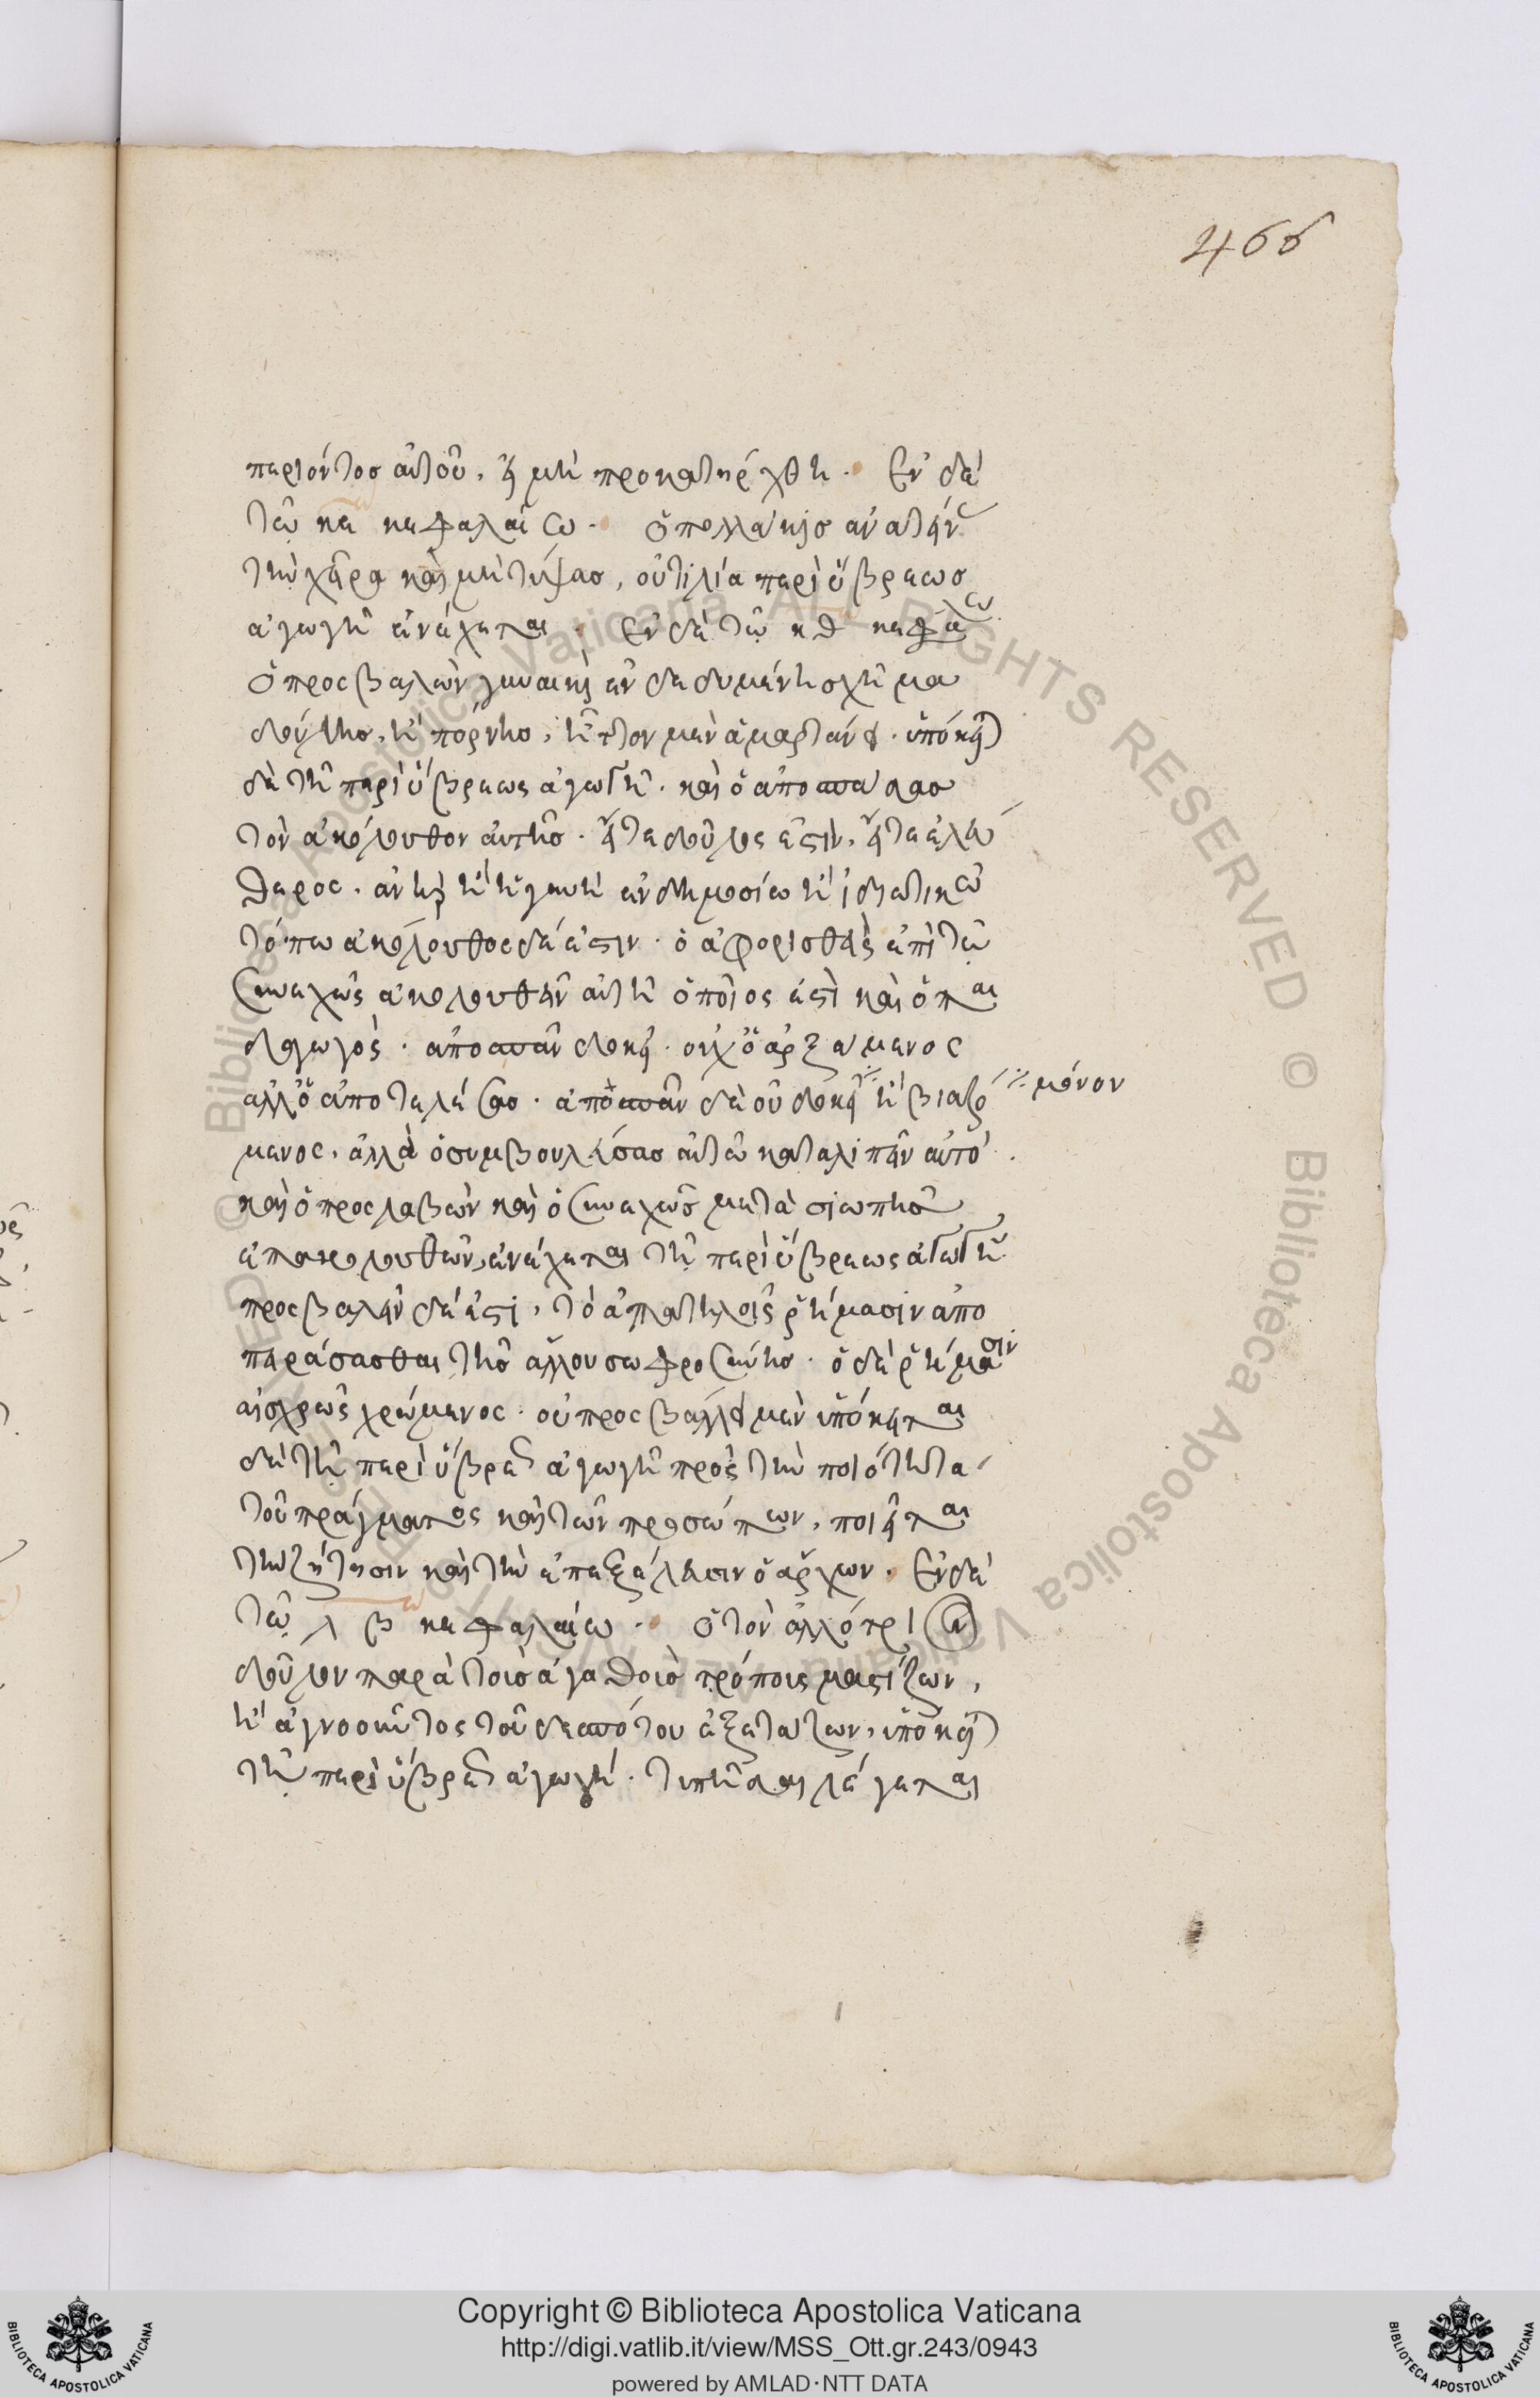 466
περιόντος αὐτοῦ, εἰ μὴ προκατήρχθη. Ἐν δὲ
τῷ κα κεφαλαίῳ. ὁ πολλάκις ἀνατείν
τὴν χεῖρα καὶ μὴ τύψας, οὐτιλία περὶ ὕβρεως
ἀγωγῇ ἐνέχεται. Ἐν δὲ τῷ κθ κεφαλ
ὁ προσβαλὼν γυναικὶ ἐνδεδυμένη σχῆμα
δούλης, ἢ πόρνης, ἧττον μὲν ἁμαρτάνει. ὑπόκει
δὲ τῇ περὶ ὕβρεως ἀγωγῇ. καὶ ὁ ἀποσπάσας
τὸν ἀκόλουθον αὐτῆς. εἴτε δοῦλος ἐστὶν, εἴτε ἐλεύ
θερος. ἀνὴρ ἢ γυνὴ ἐν δημοσίῳ ἢ ἰδιωτικῷ
τόπω ἀκόλουθος δέ ἐστιν. ὁ ἀφορισθεὶς ἐπὶ τῷ
συνεχῶς ἀκολουθεῖν αὐτῇ ὁποῖος ἐστὶ καὶ ὁ παι
δαγωγός. ἀποσπᾶν δοκεῖ. οὐχ ὁ ἀρξάμενος
ἀλλ' ὁ ἀποτελέσας. ἀποσπᾶν δὲ οὐ δοκεῖ ⁒ ἢ βιαζό ⁒ μόνον
μενος, ἀλλὰ ὁ συμβουλεύσας αὐτῷ καταλιπεῖν αὐτό.
καὶ ὁ προσλαβὼν καὶ ὁ συνεχῶς μετὰ σιωπῆς
ἐπακολουθῶν, ἐνέχεται τῇ περὶ ὕβρεως ἀγωγῇ
προσβαλεῖν δέ ἐστι, τὸ ἀπατηλοῖς ῥήμασιν ἀπο
πειράσασθαι τῆς ἄλλου σωφροσύνης. ὁ δὲ ῥήμασιν
αἰσχροῖς χρώμενος. οὐ προσβάλλει μὲν ὑπόκειται
δὲ τῇ περὶ ὕβρεως ἀγωγῇ πρὸς τὴν ποιότητα
τοῦ πράγματος καὶ τῶν προσώπων, ποιεῖται
τὴν ζήτησιν καὶ τὴν ἐπεξέλευσιν ὁ ἄρχων. Ἐν δὲ
τῷ λβ κεφαλαίω. ὁ τὸν ἀλλότριον
δοῦλον παρὰ τοῖς ἀγαθοῖς τρόποις μαστίζων,
ἢ ἀγνοοῦντος τοῦ δεσπότου ἐξετάζων, ὑπόκει
τῇ περὶ ὕβρεως ἀγωγῇ. τυπτῆσαι λέγεται
Copyright © Biblioteca Apostolica Vaticana
http://digi.vatlib.it/view/MSS_Ott.gr.243/0943
powered by AMLAD·NTT DATA